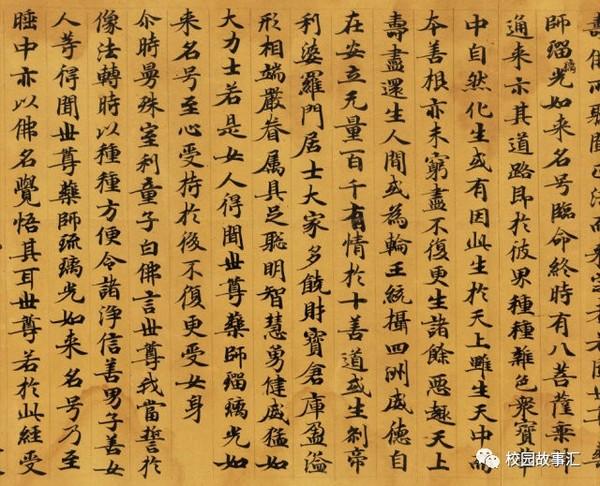 師瑠璃光如来名号臨命終時有八菩薩乗
通来示其道路即於彼界種種雜色衆寶
中自然化生或有因此生於天上雖生天中而
本善根亦未窮盡不復更生諸餘惡趣天上
壽盡還生人間或為輪王統攝四洲威德自
在安立无量百千有情於十善道或生刹帝
利婆羅門居士大家多饒財寶倉庫盈溢
形相端嚴眷属具足聡明智慧勇健威猛如
大力士若是女人得聞世尊藥師瑠璃光如
来名号至心受持於後不復更受女身
尒時曼殊室利童子白佛言世尊我當誓於
像法轉時以種種方便令諸淨信善男子善女
人等得聞世尊藥師琉璃光如来名号乃至
睡中亦以佛名覺悟其耳世尊若於此經受
校园故事汇